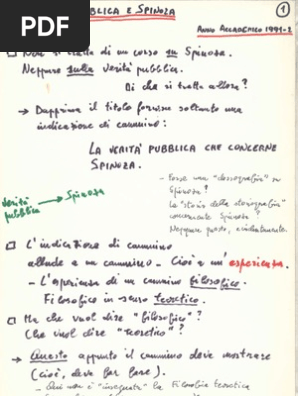 PDF
PUBBLICA E SPINOZA
1
ANNO ACCADEMICO 1991-2
Non si tratta di un corso su Spinoza.
Neppure sulla verità pubblica.
Di che si tratta allora?
→ Dapprima il titolo fornisce soltanto una
indicazione di cammino:
LA VERITÀ PUBBLICA CHE CONCERNE
SPINOZA.
- Forse una "dossografia" su
Spinoza?
La "storia della storiografia"
concernente Spinoza?
Neppure questo, evidentemente.
Verità pubblica → Spinoza
□ L'indicazione di cammino
allude a un cammino - Cioè a un'esperienza.
- L'esperienza di un cammino filosofico.
Filosofico in senso teoretico.
□ Ma che vuol dire "filosofico"?
Che vuol dire "teoretico"?
→ Questo appunto il cammino deve mostrare
(cioè, deve far fare).
- Qui non è "insegnata" la Filosofia teoretica